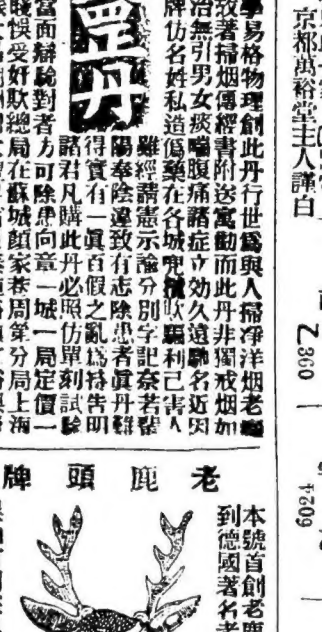 京都萬裕堂主人謹白
學易格物理創此丹行世爲與人掃淨洋烟老癮
致著掃烟傳經書附送寓勸而此丹非獨戒烟如
治無引男女痰喘腹痛諸症立効久遠馳名近因
牌仿名姓私造僞藥在各城兜攬吹騙利己害人
罡丹
雖經請憲示諭分別字記奈若輩
陽奉陰違致有志除患者眞丹難
得實有一眞百假之亂爲特告明
諸君凡購此丹必照仿單刻試驗
當面辯驗對者方可除患向章一城一局定價一
賤悞受奸欺總局在蘇城顔家巷周第分局上海
老鹿頭牌
本號首創老鹿
到德國著名老
4209